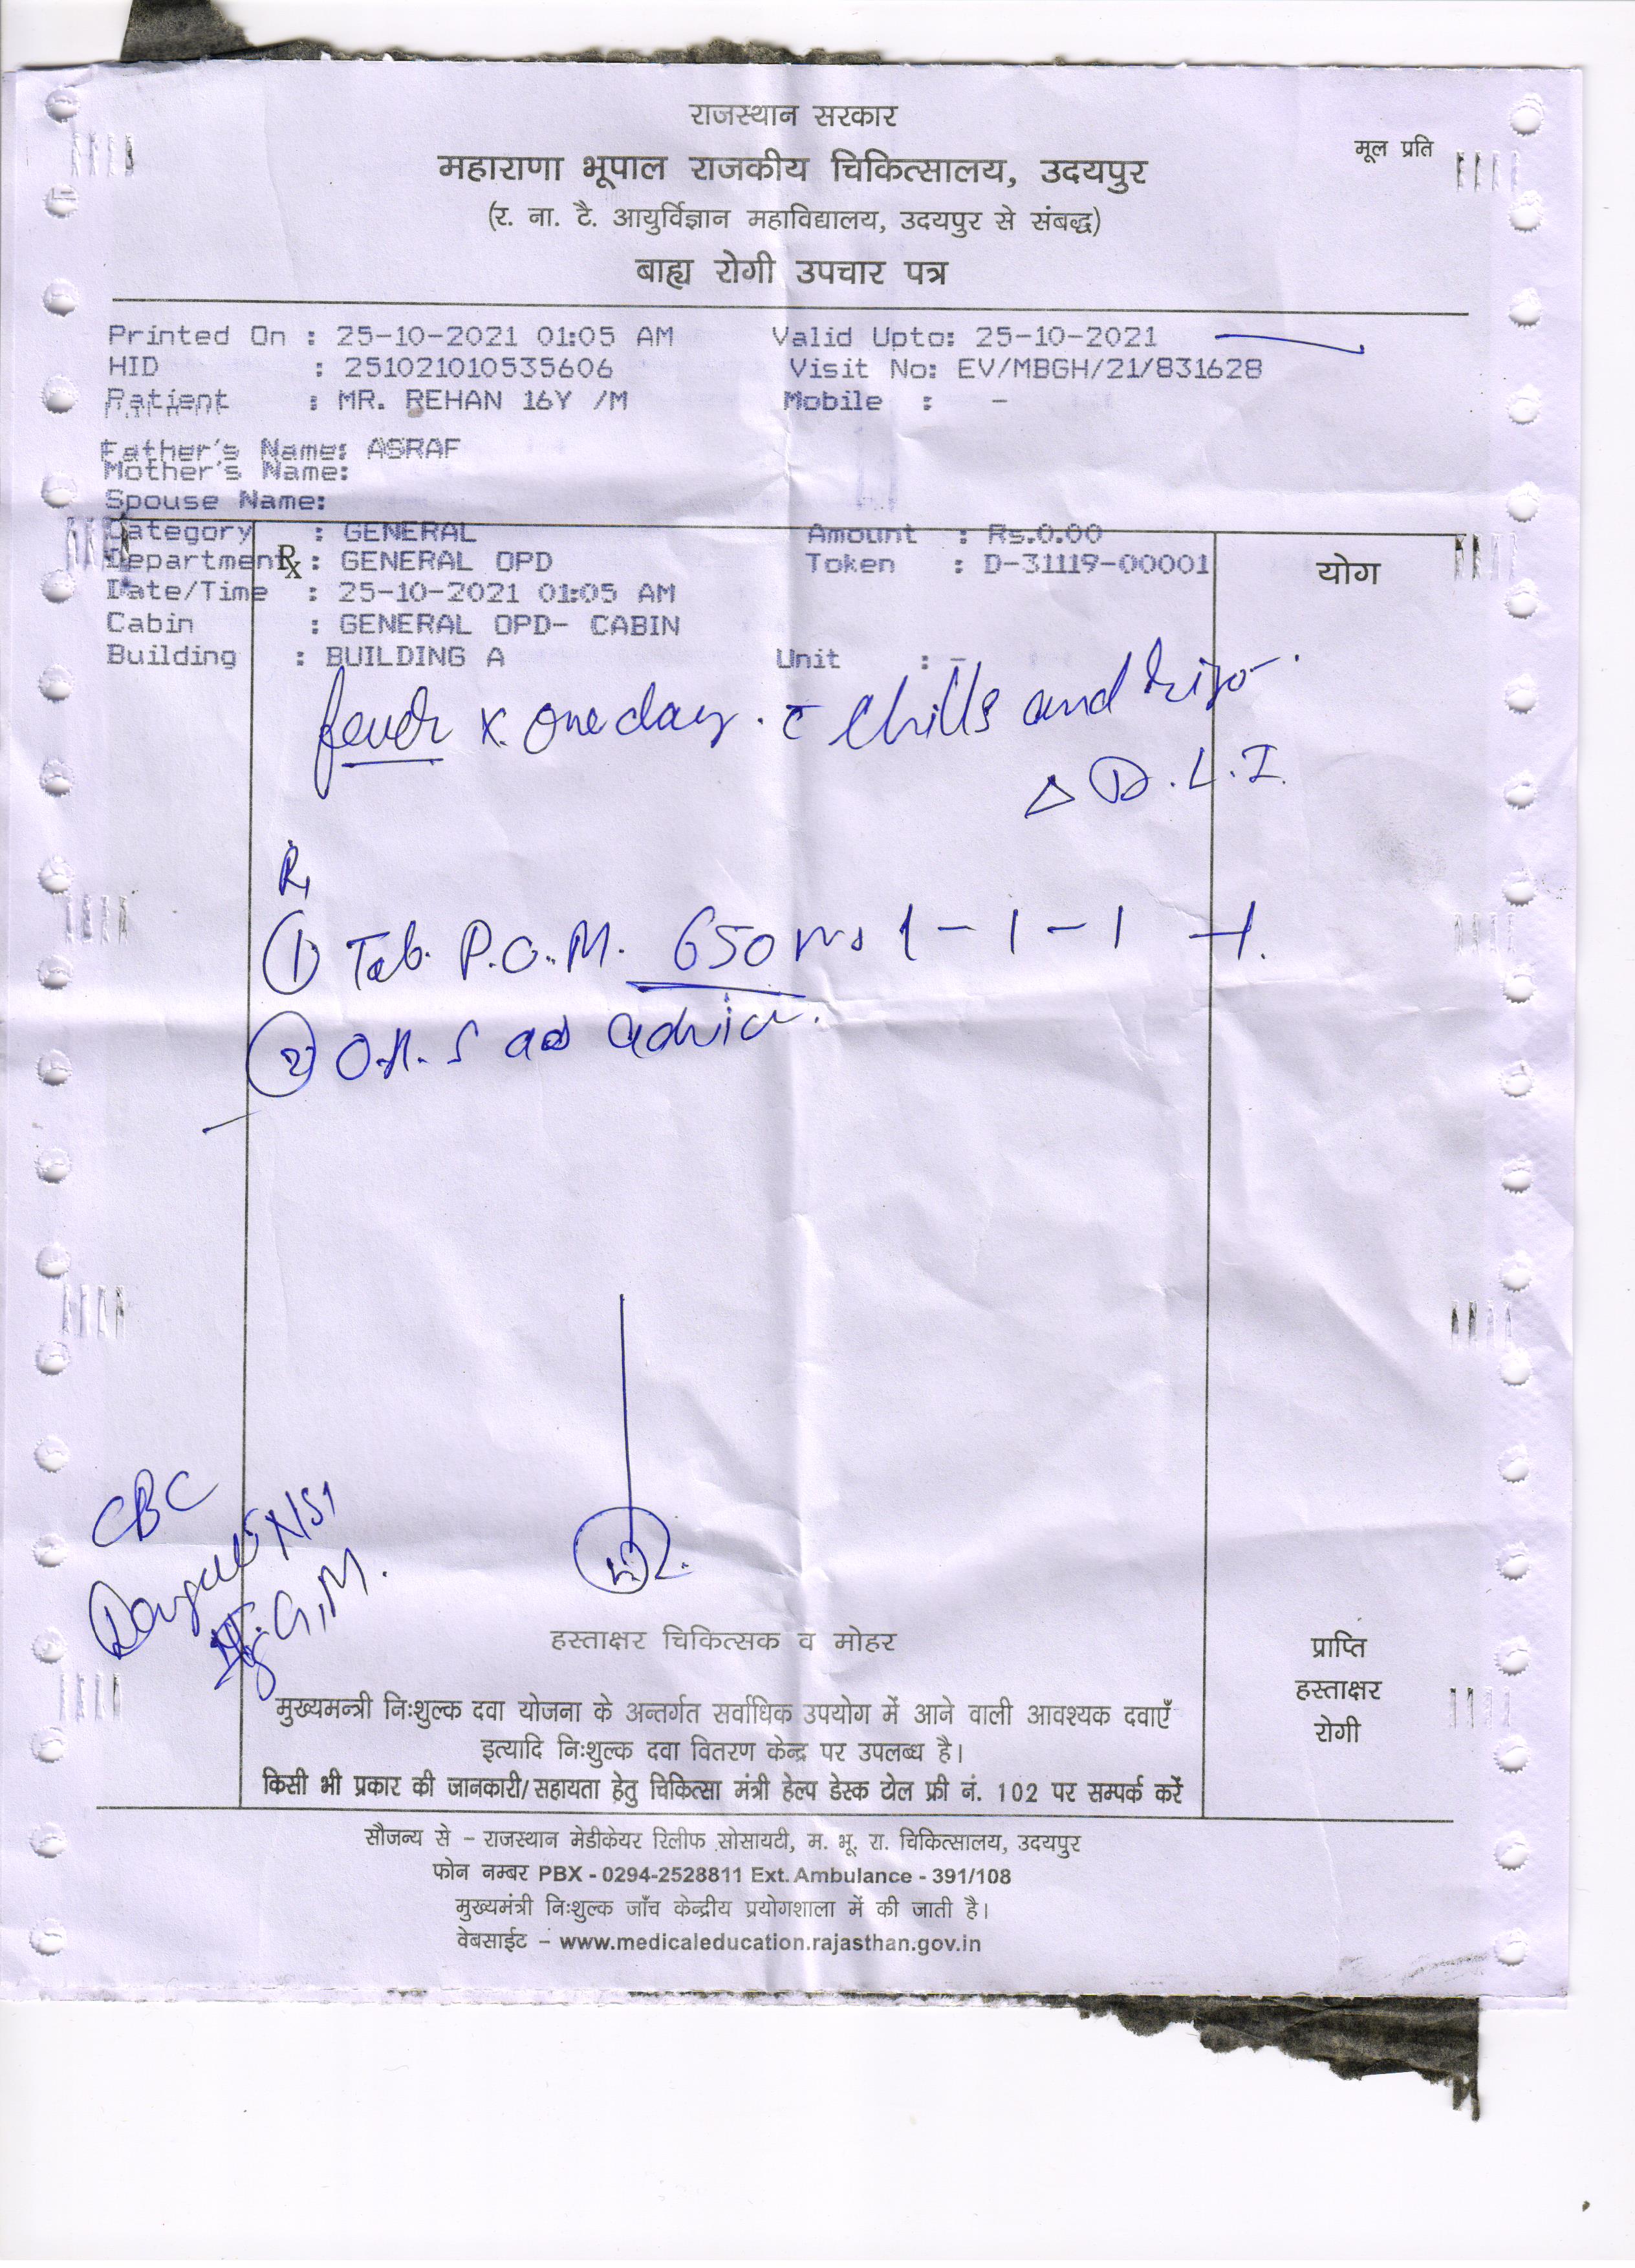 राजस्थान सरकार
मूल प्रति
महाराणा भूपाल राजकीय चिकित्सालय, उदयपुर
(र. ना. टै. आयुर्विज्ञान महाविद्यालय, उदयपुर से संबद्ध)
बाह्य रोगी उपचार पत्र
Printed On : 25-10-2021 01:05 AM Valid Upto: 25-10-2021
HID : 251021010535606 Visit No: EV/MBGH/21/831628
Patient : MR. REHAN 16Y /M Mobile : -
Father's Name: ASRAF
Mother's Name:
Spouse Name:
Category : GENERAL Amount : Rs.0.00
Department : GENERAL OPD Token : D-31119-00001
Rx
योग
Date/Time : 25-10-2021 01:05 AM
Cabin : GENERAL OPD- CABIN
Building : BUILDING A Unit : -
fever x one day. c̄ chills and
Δ D.L.I.
R
① Tab. P.C.M. 650 1-1-1
② O.R.S as advice.
CBC
Dengue NS1
Ig. G, M.
हस्ताक्षर चिकित्सक व मोहर
प्राप्ति
हस्ताक्षर
रोगी
मुख्यमन्त्री निःशुल्क दवा योजना के अन्तर्गत सर्वाधिक उपयोग में आने वाली आवश्यक दवाएँ
इत्यादि निःशुल्क दवा वितरण केन्द्र पर उपलब्ध है।
किसी भी प्रकार की जानकारी/सहायता हेतु चिकित्सा मंत्री हेल्प डेस्क टोल फ्री नं. 102 पर सम्पर्क करें
सौजन्य से - राजस्थान मेडीकेयर रिलीफ सोसायटी, म. भू. रा. चिकित्सालय, उदयपुर
फोन नम्बर PBX - 0294-2528811 Ext. Ambulance - 391/108
मुख्यमंत्री निःशुल्क जाँच केन्द्रीय प्रयोगशाला में की जाती है।
वेबसाईट - www.medicaleducation.rajasthan.gov.in